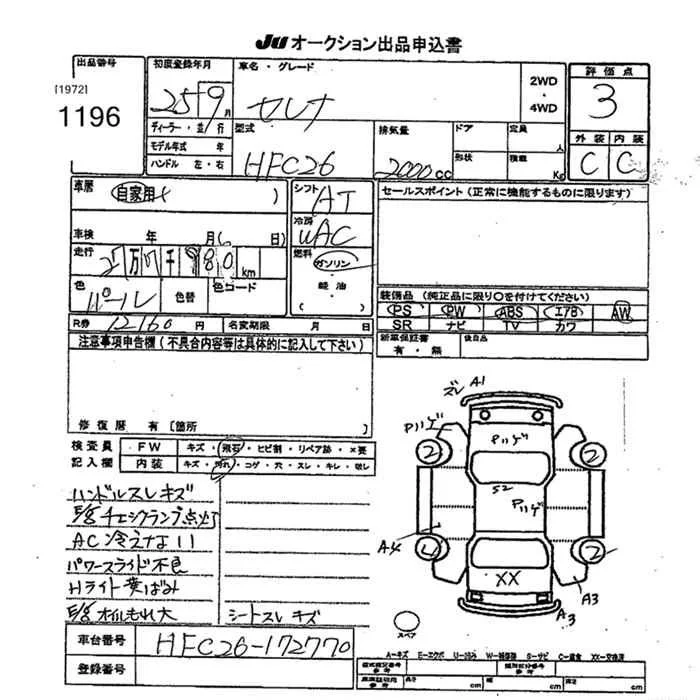 JU オークション出品申込書
出品番号
[1972]
1196
初度登録年月
25 9 月
車名・グレード
セレナ
2WD
・
4WD
評価点
3
ディーラー・並行
モデル年式 年
ハンドル 左・右
型式
HFC26
排気量
2000 cc
ドア
定員
人
形状
積載
Kg
外装 内装
C C
車歴
自家用
)
シフト
AT
セールスポイント (正常に機能するものに限ります)
車検 年 月 日)
冷房
WAC
走行
万 千 980 km
燃料
ガソリン
軽油
( )
色
パール
色替
色コード
装備品 (純正品に限り○を付けてください)
PS PW ABS エアB AW
SR ナビ TV カワ
R券 12160 円
名変期限 月 日
新車保証書
有・無
後日品
注意事項申告欄 (不具合内容等は具体的に記入して下さい)
修復歴 有 [箇所 ]
検査員
記入欄
・FW ・キズ・飛石・ヒビ割・リペア跡・×要
・内装 ・キズ・汚れ・コゲ・穴・スレ・キレ・破レ
ハンドルスレキズ
E/gチェックランプ点灯
AC冷えない
パワースライド不良
Hライト黄ばみ
E/gオイルもれ大
シートスレキズ
ズレ A1
Pハゲ
Pハゲ
2
2
S2
Pハゲ
A4
2
XX
A3
A3
スペア
車台番号
HFC26-172770
登録番号
A-キズ E-エクボ U-凹み W-補修跡 S-サビ C-腐食 XX-交換済
長さ cm 幅 cm 高さ cm